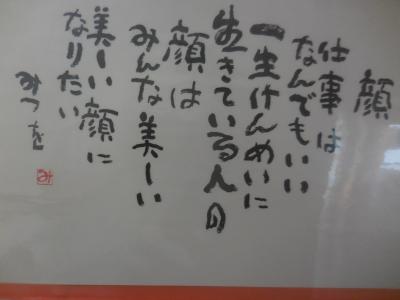 顔
仕事は
なんでもいい
一生けんめいに
生きている人の
顔は
みんな美しい
美しい顔に
なりたい
みつを
み